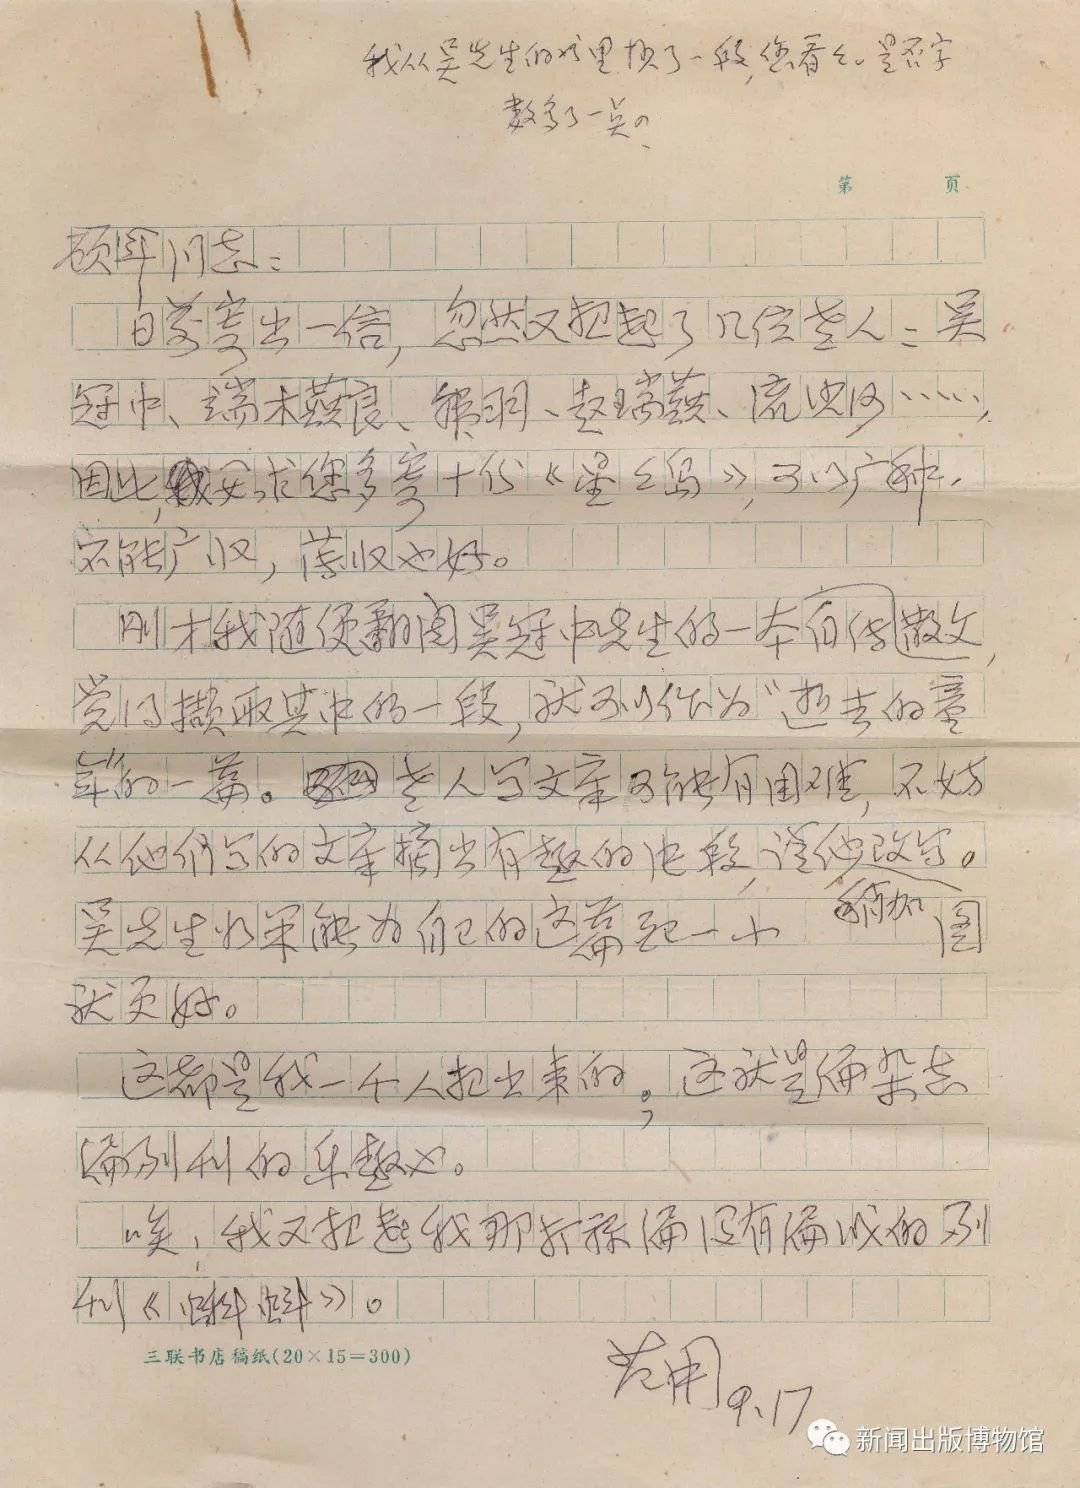 我从吴先生的书里摸了一段,您看看。是否字
数多了一点。
第　　页
硕年同志:
日前寄出一信,忽然又想起了几位老人:吴
冠中、端木蕻良、绿羽、赵瑞蕻、流沙河……,
因此,要求您多寄十份《星星岛》,可以广种,
不能广收,薄收也好。
刚才我随便翻阅吴冠中先生的一本自传散文,
觉得撷取其中的一段,就可以作为“逝去的童
年”的一篇。老人写文章可能有困难,不妨
从他们写的文章摘出有趣的片段,请他改写。
稍加
吴先生如果能为自己的这篇配一小图
就更好。
这都是我一个人想出来的;这就是编杂志
编副刊的乐趣也。
唉,我又想起我那打算编没有编成的副
刊《蝌蚪》。
三联书店稿纸(20×15=300)
范用
9.17
新闻出版博物馆